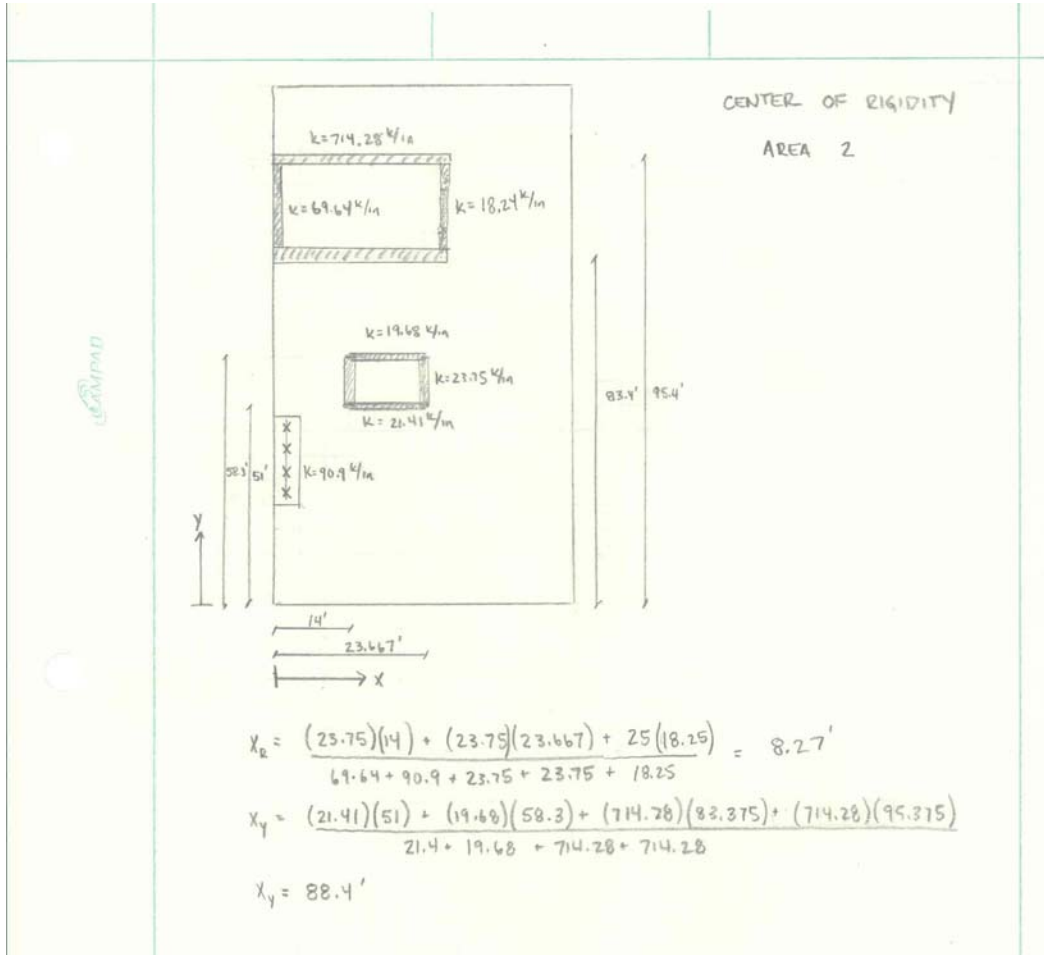 CENTER OF RIGIDITY
AREA 2
k=714.28 k/in
k=69.64 k/in
k=18.24 k/in
k=19.68 k/in
k=23.75 k/in
k=21.41 k/in
K=90.9 k/in
83.4'
95.4'
58.3'
51'
Y
14'
23.667'
X
CAMPAD
X_R = (23.75)(14) + (23.75)(23.667) + 25(18.25) = 8.27'
69.64 + 90.9 + 23.75 + 23.75 + 18.25
X_y = (21.41)(51) + (19.68)(58.3) + (714.28)(83.375) + (714.28)(95.375)
21.4 + 19.68 + 714.28 + 714.28
X_y = 88.4'